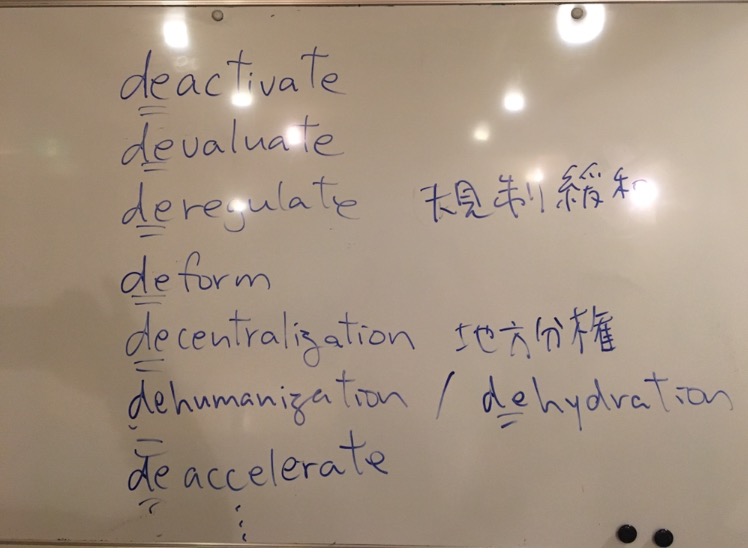 deactivate
devaluate
deregulate 規制緩和
deform
decentralization 地方分権
dehumanization / dehydration
deaccelerate